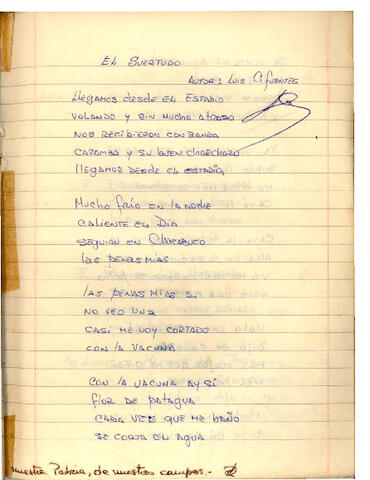 El Suertudo
Autor: Luis Cifuentes
llegamos desde el Estadio
volando y sin mucho atraso
nos recibieron con banda
caramba y su buen charchazo
llegamos desde el estadio,
Mucho frío en la noche
caliente el día
seguían en Chacabuco
las penas mías
las penas mías sí
no veo una
casi me voy cortado
con la vacuna
con la vacuna ay sí
flor de patagua
cada vez que me baño
se corta el agua
nuestra Patria, de nuestros campos.-